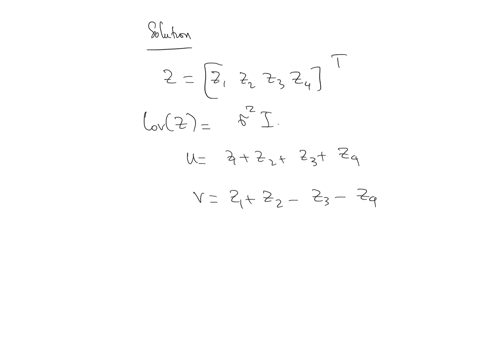 Solution
Z = [Z₁ Z₂ Z₃ Z₄]ᵀ
Cov(Z) = σ² I.
u = Z₁ + Z₂ + Z₃ + Z₄
V = Z₁ + Z₂ − Z₃ − Z₄